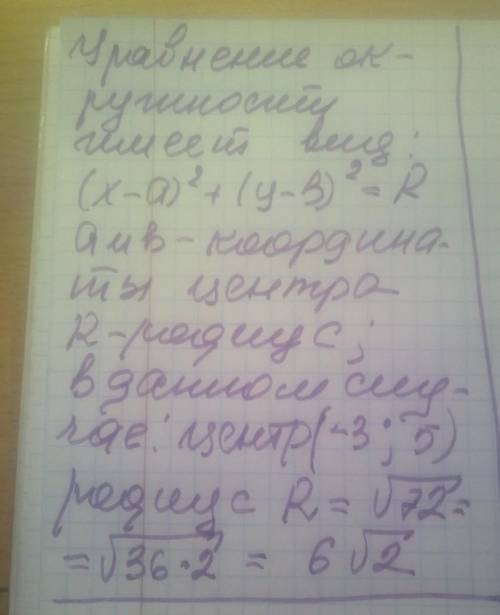 Уравнение ок-
ружности
имеет вид:
(x-a)² + (y-в)² = R
a и в - координа-
ты центра
R - радиус;
в данном слу-
чае: центр (-3; 5)
радиус R = √72 =
= √36·2 = 6√2